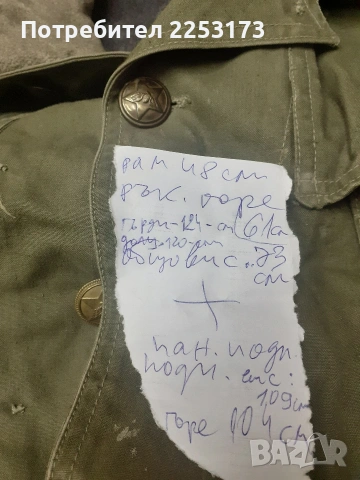 Потребител 2253173
рам 48 см
рък. горе
гърди-124-см 61см
долу 120-см
общо вис.-73
см
пан. подп.
подп. вис:
109см
горе 104 см
BAZAR
bg